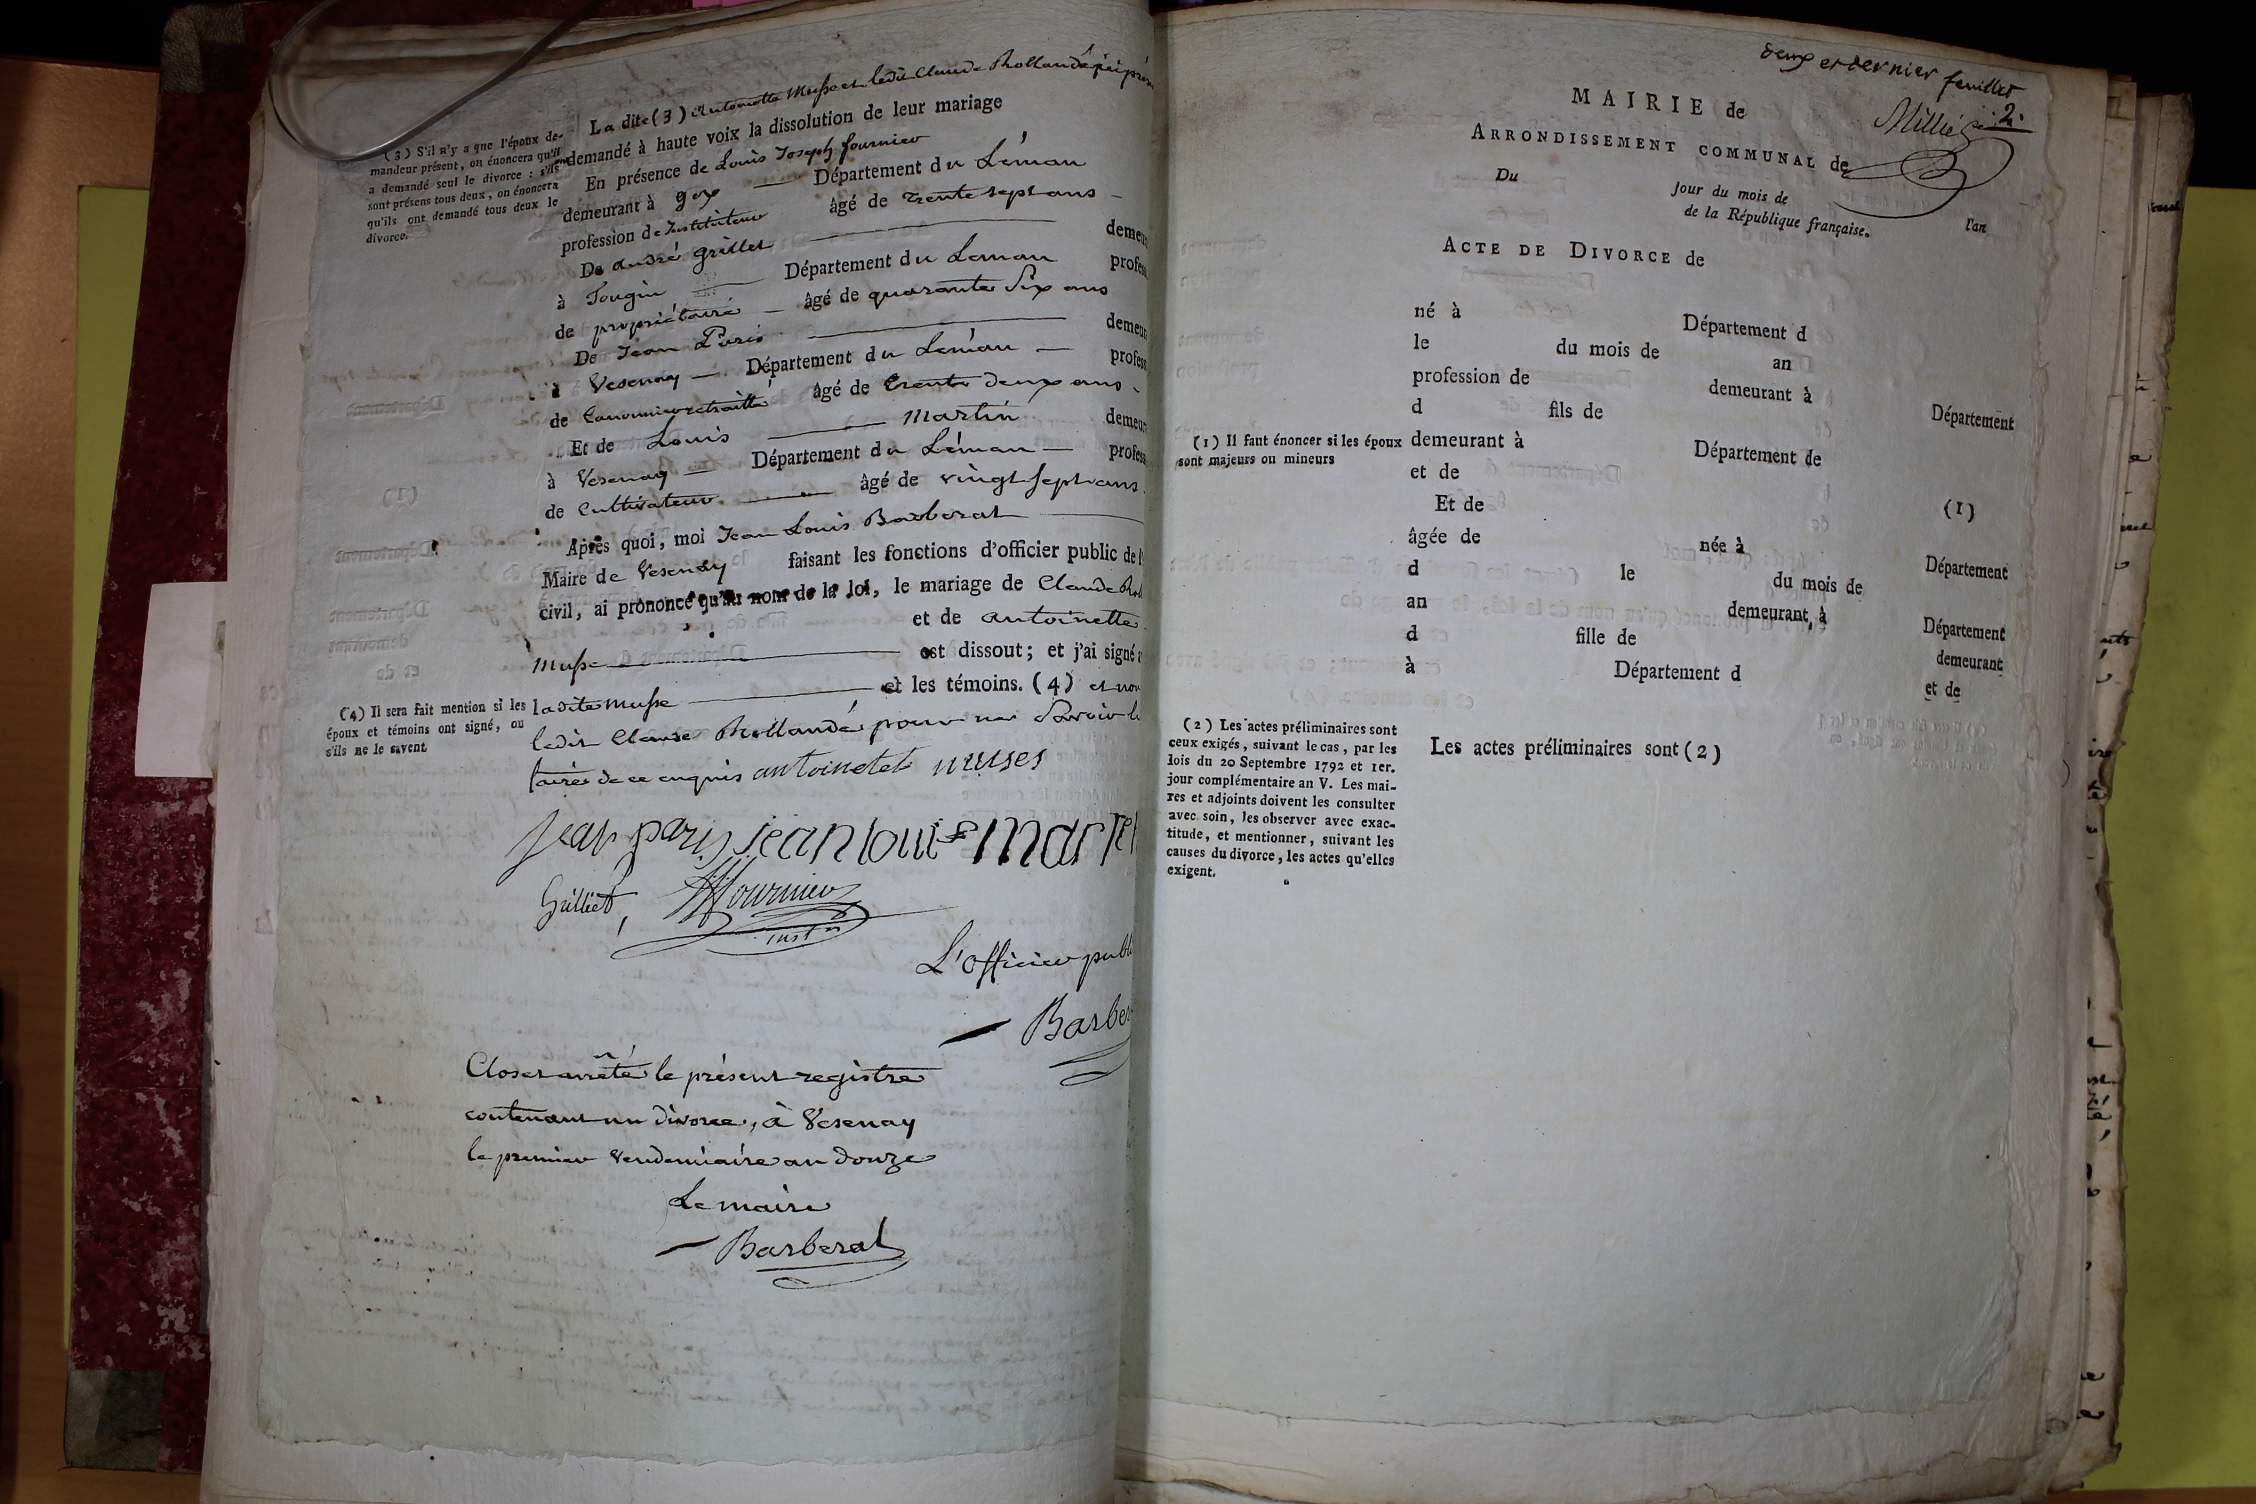 (3) S'il n'y a que l'époux de-
mandeur présent, on énoncera qu'il
a demandé seul le divorce : s'ils
sont présens tous deux, on énoncera
qu'ils ont demandé tous deux le
divorce.
La dite (3) Antoinette Musse et ledit Claude Rollandé
demandé à haute voix la dissolution de leur mariage
En présence de Louis Joseph fournier
demeurant à gex Département du Léman
profession de Instituteur âgé de trente sept ans
De andré grillet demeu
à Tougin Département du Léman profes
de propriétaire âgé de quarante six ans
De Jean Paris demeur
à Vesenay Département du Léman profess
de Canonnier retraitté âgé de trente deux ans
Et de Louis Martin demeur
à Vesenay Département du Léman profess
de Cultivateur âgé de vingt sept ans
Après quoi, moi Jean Louis Barberat
Maire de Vesenay faisant les fonctions d'officier public de l'
civil, ai prononcé qu'au nom de la loi, le mariage de Claude Rol
et de antoinette
Musse est dissout ; et j'ai signé a
(4) Il sera fait mention si les
époux et témoins ont signé, ou
s'ils ne le savent
ladite Musse et les témoins. (4) et non
ledit Claude Rollandé pour ne Savoir le
faire de ce enquis antoinete muses
jean paris jean louis martin
Grilliet, fournier
inst.r
L'officier publi
Barber
Clos et arrêté le présent registre
contenant un divorce, à Vesenay
le premier Vendemiaire an douze
Le maire
Barberat
deux et dernier feuillet
2.
MAIRIE de
ARRONDISSEMENT COMMUNAL de
Du jour du mois de l'an
de la République française.
ACTE DE DIVORCE de
né à Département d
le du mois de an
profession de demeurant à
d fils de Département
(1) Il faut énoncer si les époux
sont majeurs ou mineurs
demeurant à Département de
et de
Et de (1)
âgée de née à
d le du mois de Département
an demeurant à
d fille de Département
à Département d demeurant
et de
(2) Les actes préliminaires sont
ceux exigés, suivant le cas, par les
lois du 20 Septembre 1792 et 1er.
jour complémentaire an V. Les mai-
res et adjoints doivent les consulter
avec soin, les observer avec exac-
titude, et mentionner, suivant les
causes du divorce, les actes qu'elles
exigent.
Les actes préliminaires sont (2)